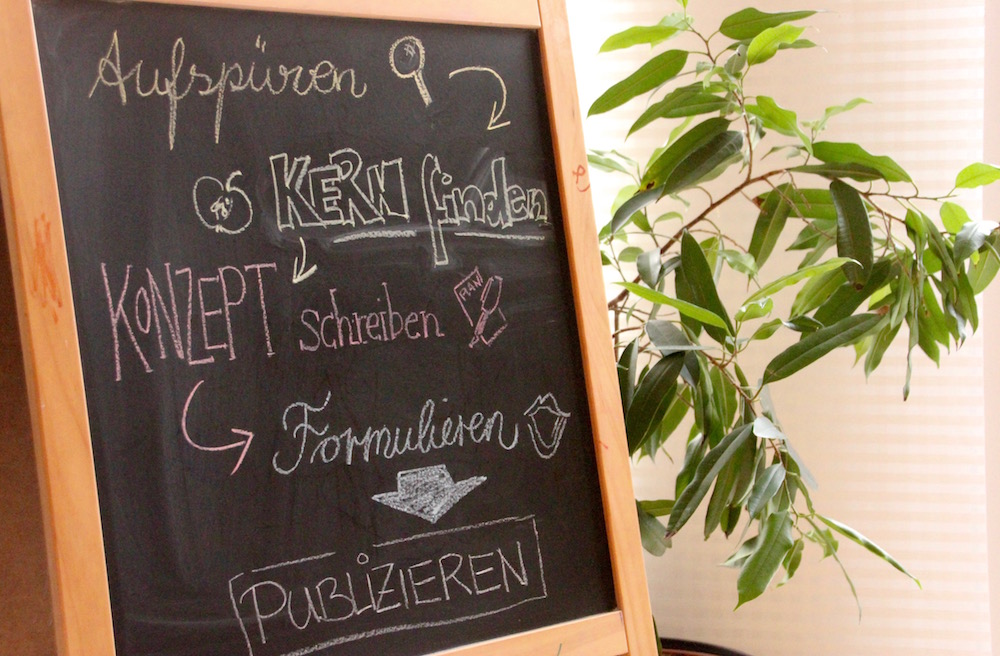 Aufspüren
KERN finden
KONZEPT schreiben
PLAN
Formulieren
PUBLIZIEREN